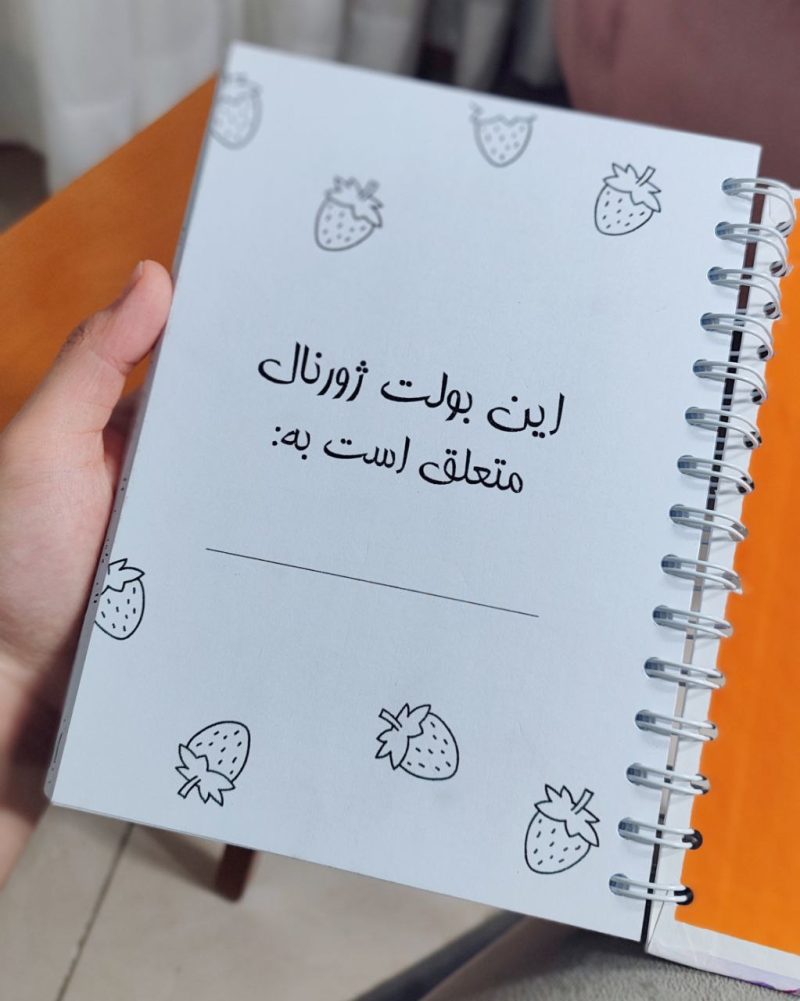 این بولت ژورنال
متعلق است به: